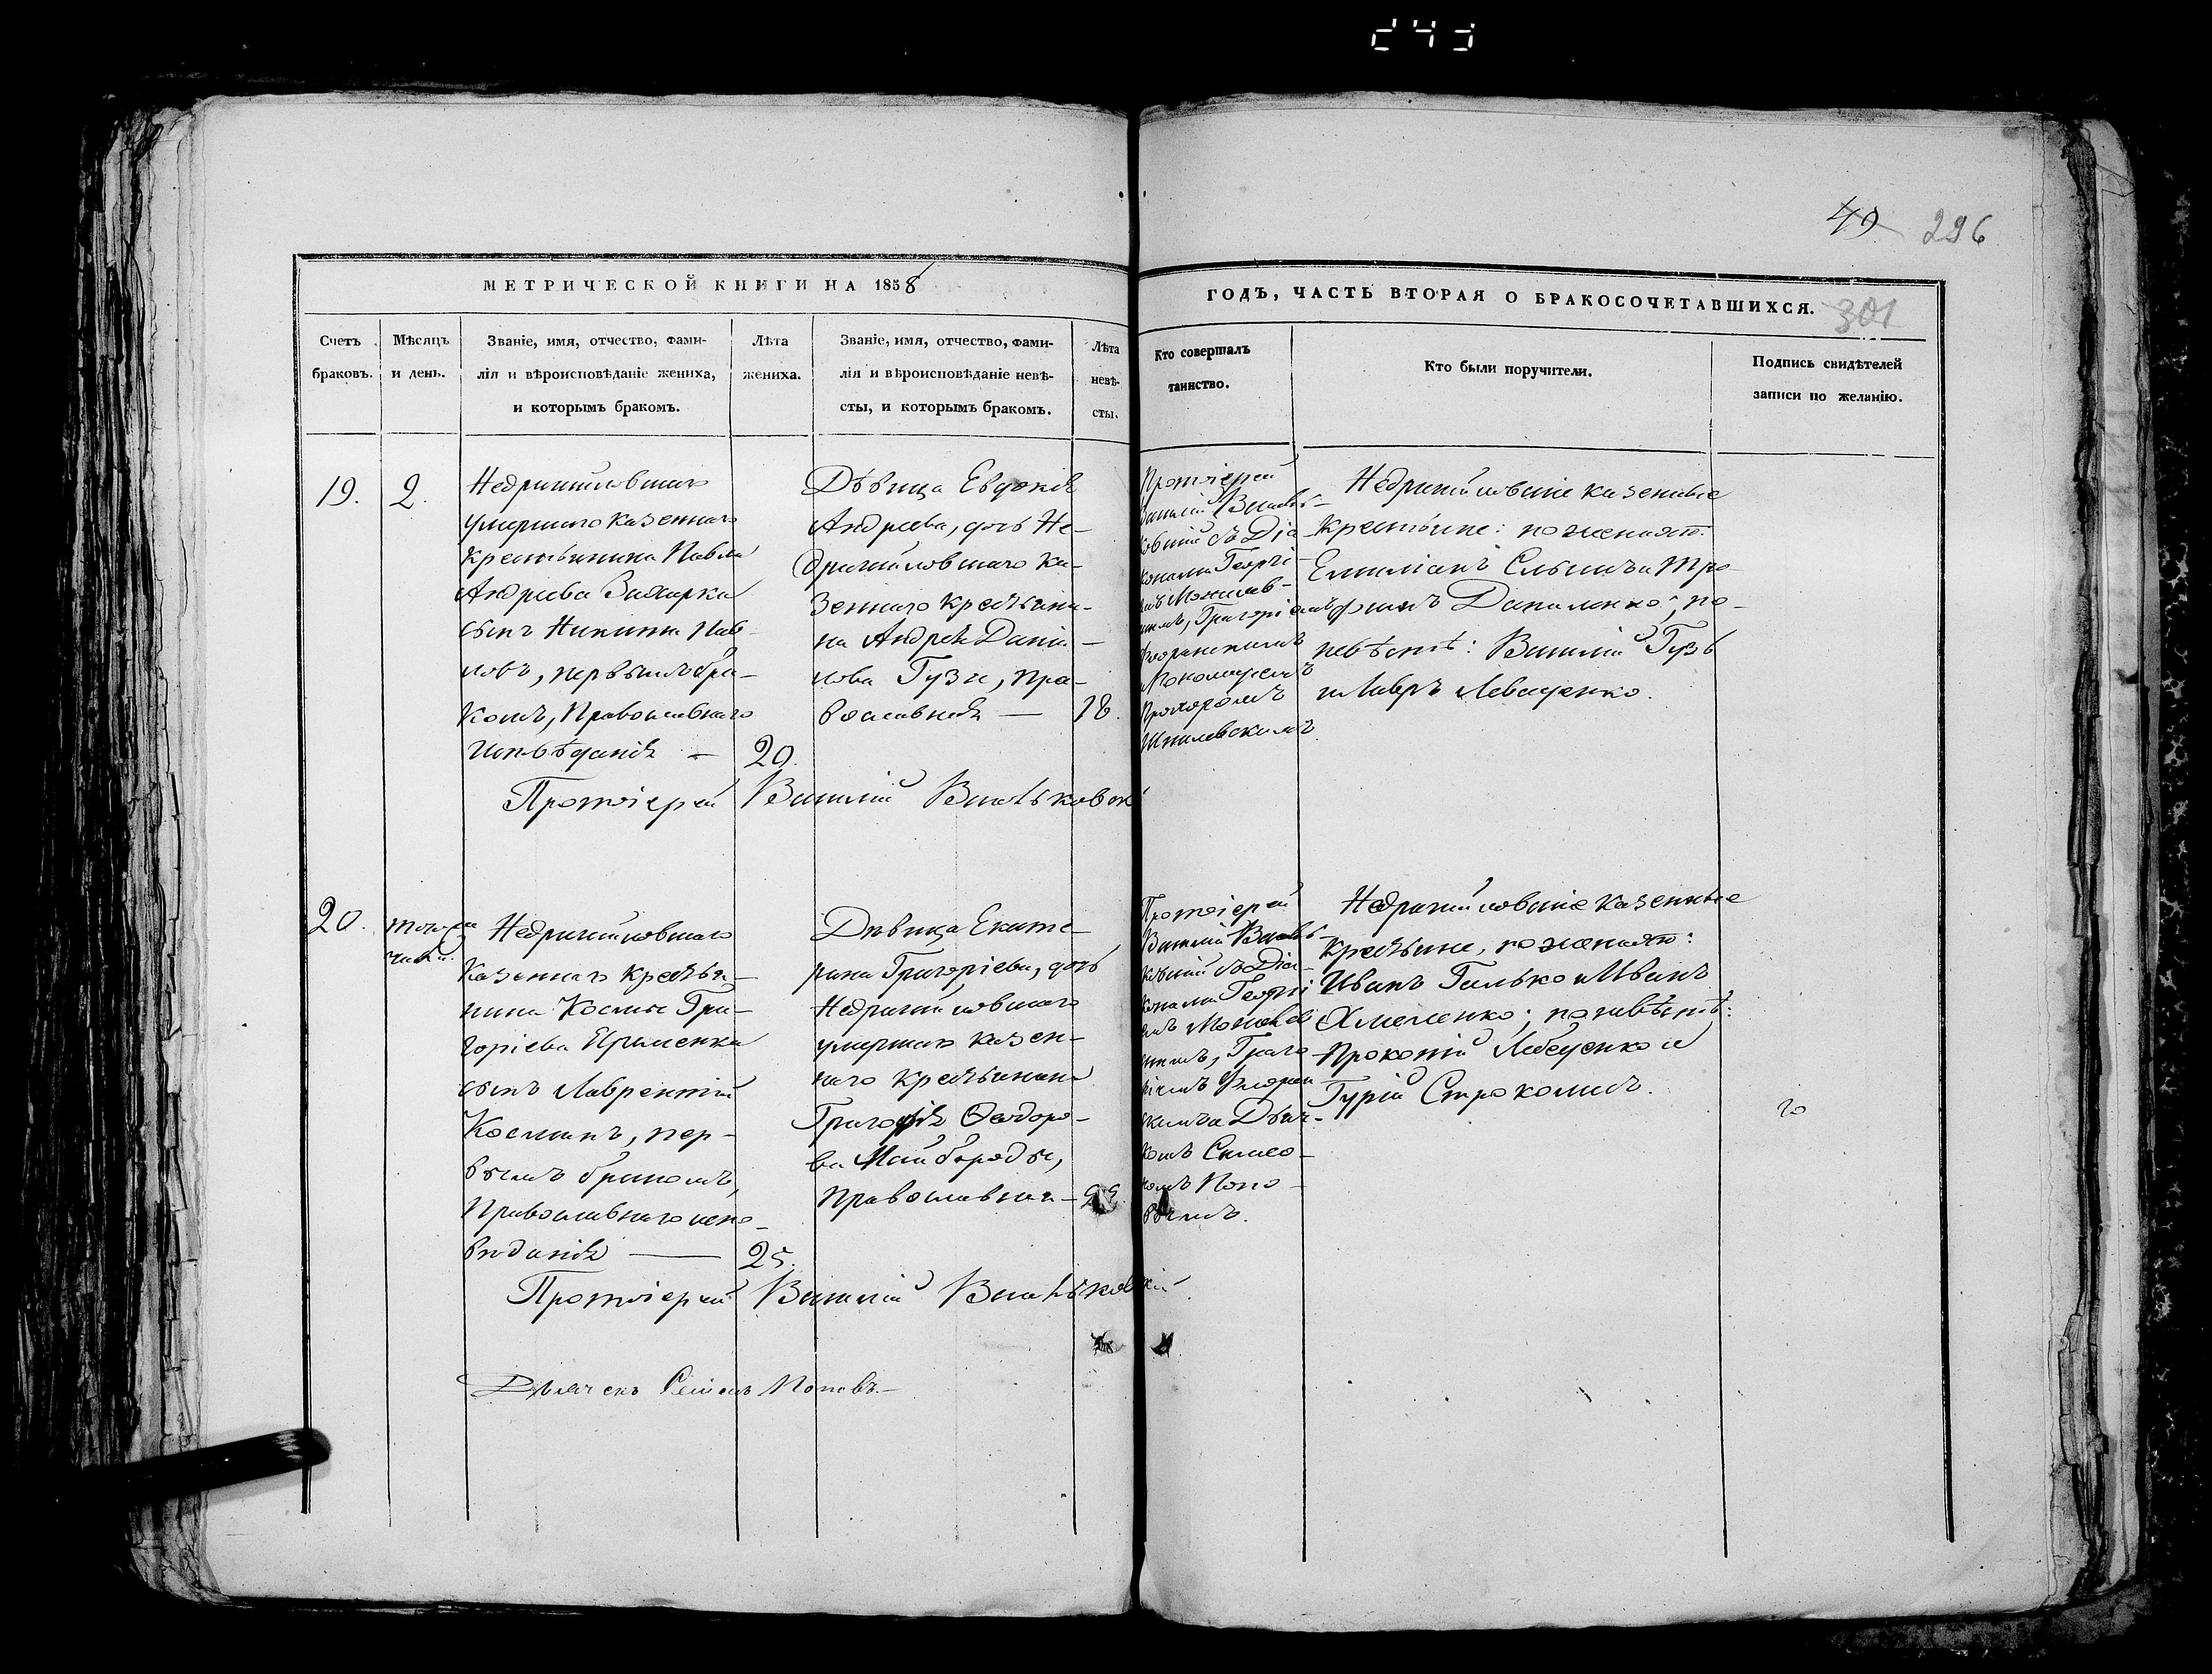 49 296
МЕТРИЧЕСКОЙ КНИГИ НА 1858
ГОДЪ, ЧАСТЬ ВТОРАЯ О БРАКОСОЧЕТАВШИХСЯ.
301
Счетъ
браковъ.
Мѣсяцъ
и день.
Званіе, имя, отчество, фами-
лія и вѣроисповѣданіе жениха,
и которымъ бракомъ.
Лѣта
жениха.
Званіе, имя, отчество, фами-
лія и вѣроисповѣданіе невѣ-
сты, и которымъ бракомъ.
Лѣта
невѣ-
сты.
Кто совершалъ
таинство.
Кто были поручители.
Подпись свидѣтелей
записи по желанію.
19.
2.
Недригайловшаго
умершаго казеннаго
крестьянина Павла
Андреева Захарка
сынъ Никита Пав-
ловъ, первымъ бра-
комъ, Православнаго
Исповѣданія —
20.
Дѣвица Евдокія
Андреева, дочь Не-
дригайловшаго ка-
зеннаго крестьяни-
на Андрея Дані-
лова Гузя, пра-
вославная —
18.
Протоіерей
Василій
съ Діа-
кономъ Георгі-
Григоріемъ
Пономаремъ
Прохоромъ
Шпилевскимъ
Недригайловшіе казенные
крестьяне: по женихѣ:
Емиліанъ и Тро-
фимъ Даниленко; по
невѣстѣ: Василій Гузь
и Лавръ Леващенко.
Протоіерей Василій
20.
того же
числа.
Недригайловшаго
Казеннаго крестья-
нина Космы Гри-
горіева Ярменка
сынъ Лаврентій
Косминъ, пер-
вымъ бракомъ,
Православнаго испо-
вѣданія —
25.
Дѣвица Екате-
рина Григоріева, дочь
Недригайловшаго
умершаго казен-
наго крестьянина
Григорія Ѳеодоро-
ва Майбороды,
Православная —
Протоіерей
Василій
съ Діа-
кономъ Георгі
Григо-
ріемъ
и Дьяч-
комъ Симео-
номъ Попо-
вымъ.
Недригайловшіе казенные
крестьяне, по женихѣ:
Иванъ Галько и Иванъ
Хмеленко; по невѣстѣ:
Прокопій и
Гурій Строкомидъ.
Протоіерей Василій
Дьячекъ Симеонъ Поповъ.